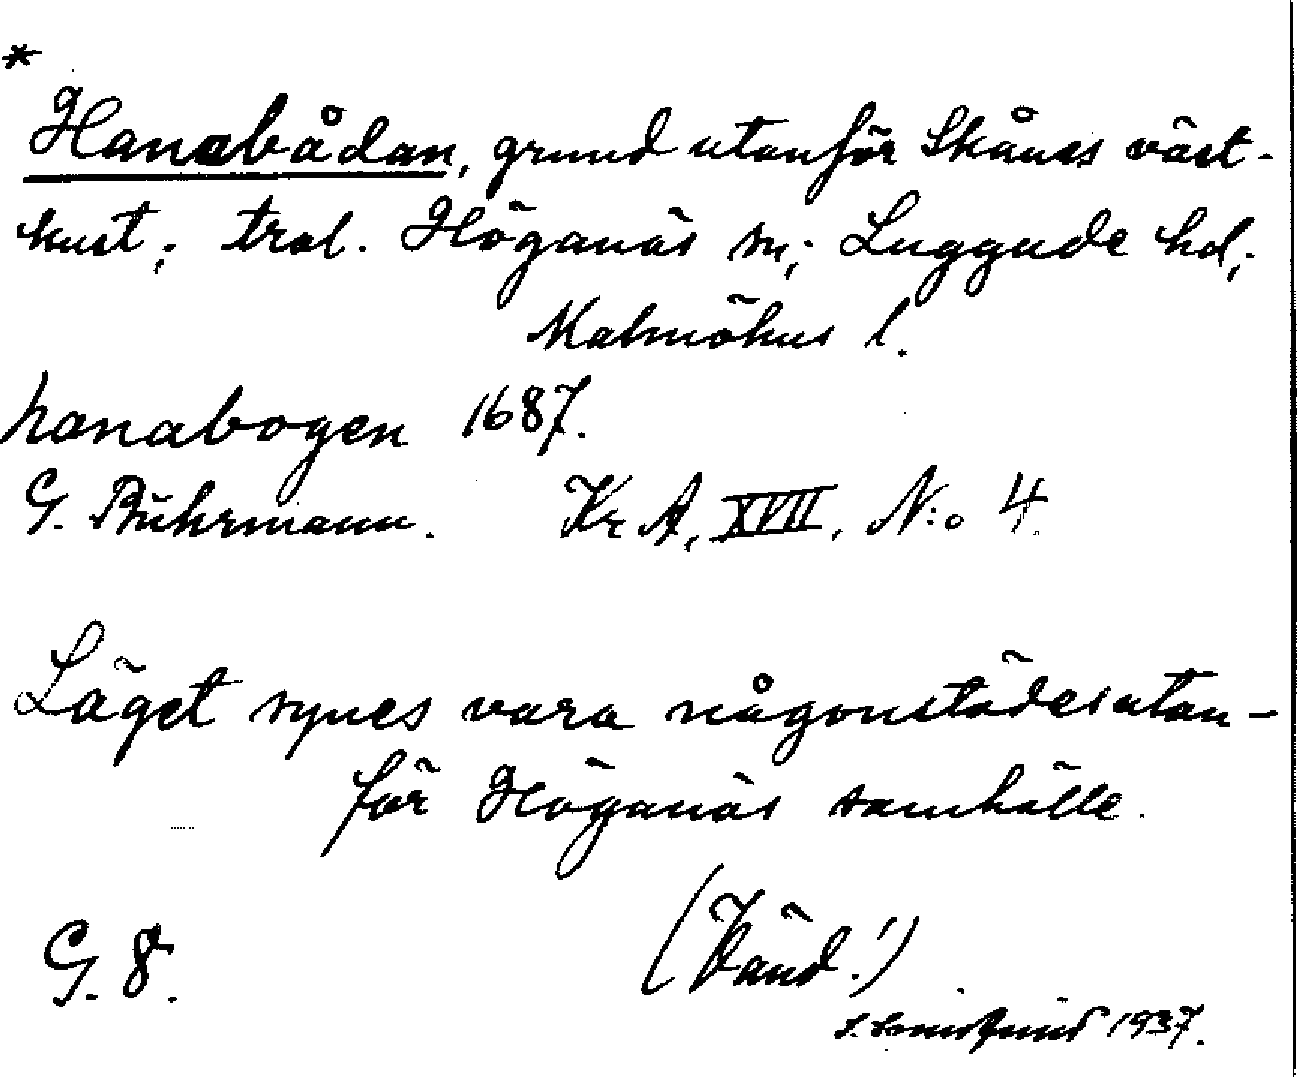 *
Hanabådan, grund utanför Skånes väst-
kust; trol. Höganäs sn; Luggude hd;
Malmöhus l.
hanabogen 1687.
G. Buhrmann. Kr A, XVII, N:o 4.
Läget synes vara någonstädes utan-
för Höganäs samhälle.
(Vänd!)
G. 8.
1937.